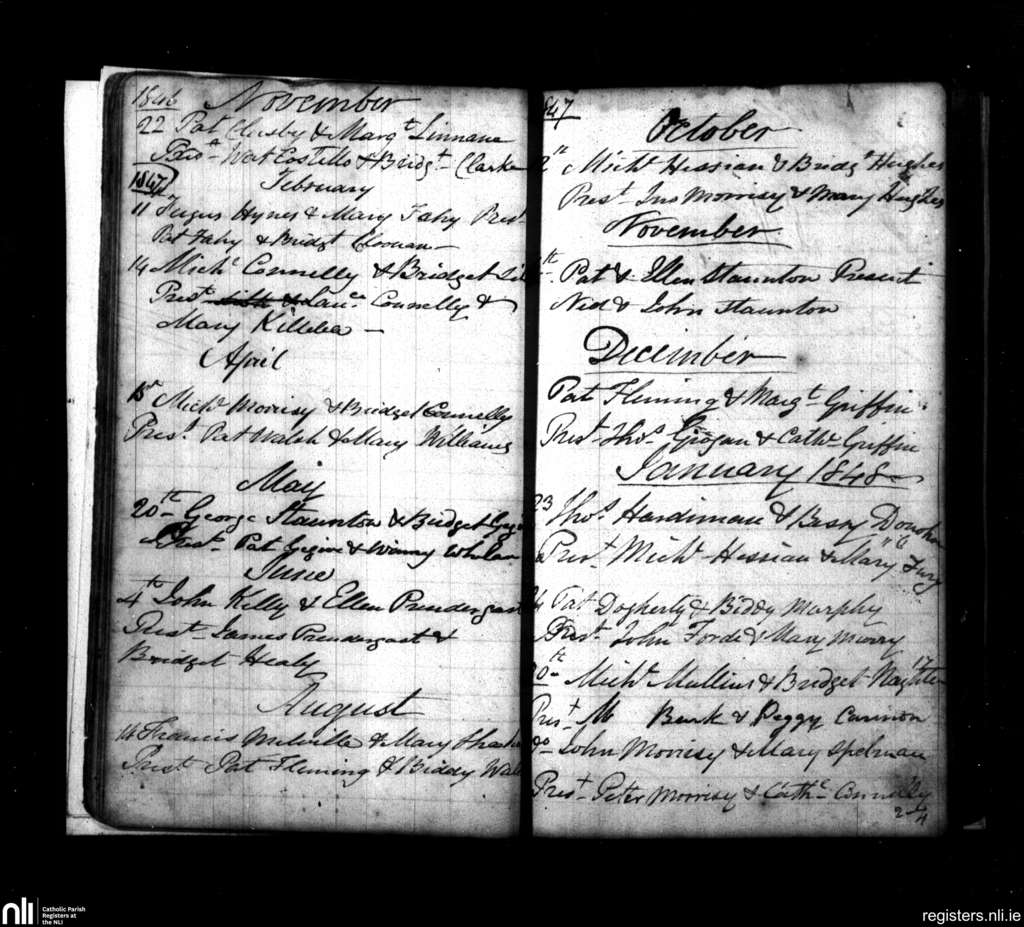 1846 November
22 Pat Clusby & Margt Linnane
Prest Wat Costello & Bridgt Clarke
1847
February
11 Fergus Hynes & Mary Fahy Prest
Pat Fahy & Bridgt Cloonan
14 Michl Connelly & Bridget
Prest Lau Connelly &
Mary Killelea
April
15 Michl Morrisy & Bridget Connelly
Prest Pat Walsh & Mary Williams
May
20th George Staunton & Bridget
Prest Pat & Winny Whelan
June
4th John Kelly & Ellen Prendergast
Prest James Prendergast &
Bridget Healy
August
14 Francis Melville & Mary
Prest Pat Fleming & Biddy
847
October
Michl Hessian & Bridgt Hughes
Prest Jno Morrisy & Mary Hughes
November
Pat & Ellen Staunton Present
Ned & John Staunton
December
Pat Fleming & Margt Griffin
Prest Thos Grogan & Cathe Griffin
January 1848
23 Thos Hardiman & Bessy
Prest Michl Hessian & Mary Fury
Pat Dogherty & Biddy Murphy
Prest John Forde & Mary Murry
Michl Mullins & Bridget
Prest M Burk & Peggy Cannon
do John Morrisy & Mary Spelman
Prest Peter Morrisy & Cathe Connelly
nli
Catholic Parish
Registers at
the NLI
registers.nli.ie